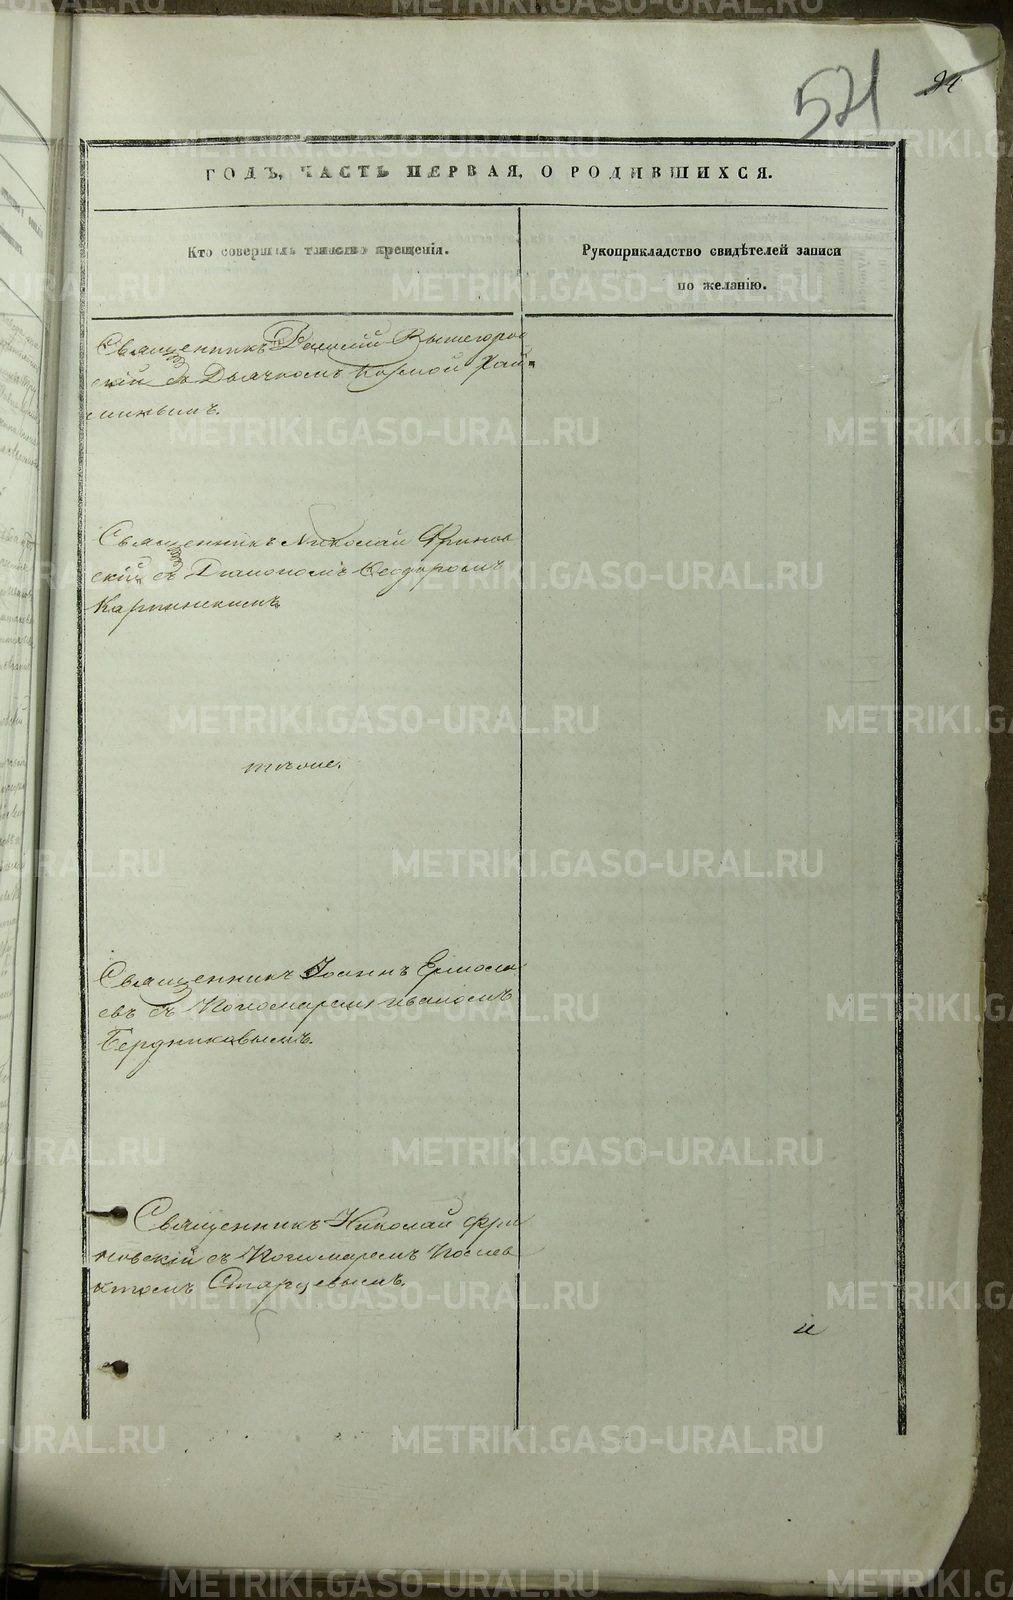 521
ГОДЪ, ЧАСТЬ ПЕРВАЯ, О РОДИВШИХСЯ.
Кто совершилъ таинство крещенія.
Рукоприкладство свидѣтелей записи
по желанію.
Священникъ Василій Вышегоров
скій съ Дьячкомъ Космой Хай-
минымъ.
Священникъ Николай Фринов
скій съ Діакономъ Ѳеодоромъ
Карпинскимъ
тѣже.
Священникъ Іоаннъ Ермола
евъ съ Пономаремъ Иваномъ
Бердниковымъ.
Священникъ Николай Фри
новскій съ Пономаремъ
Старцевымъ.
и
METRIKI.GASO-URAL.RU